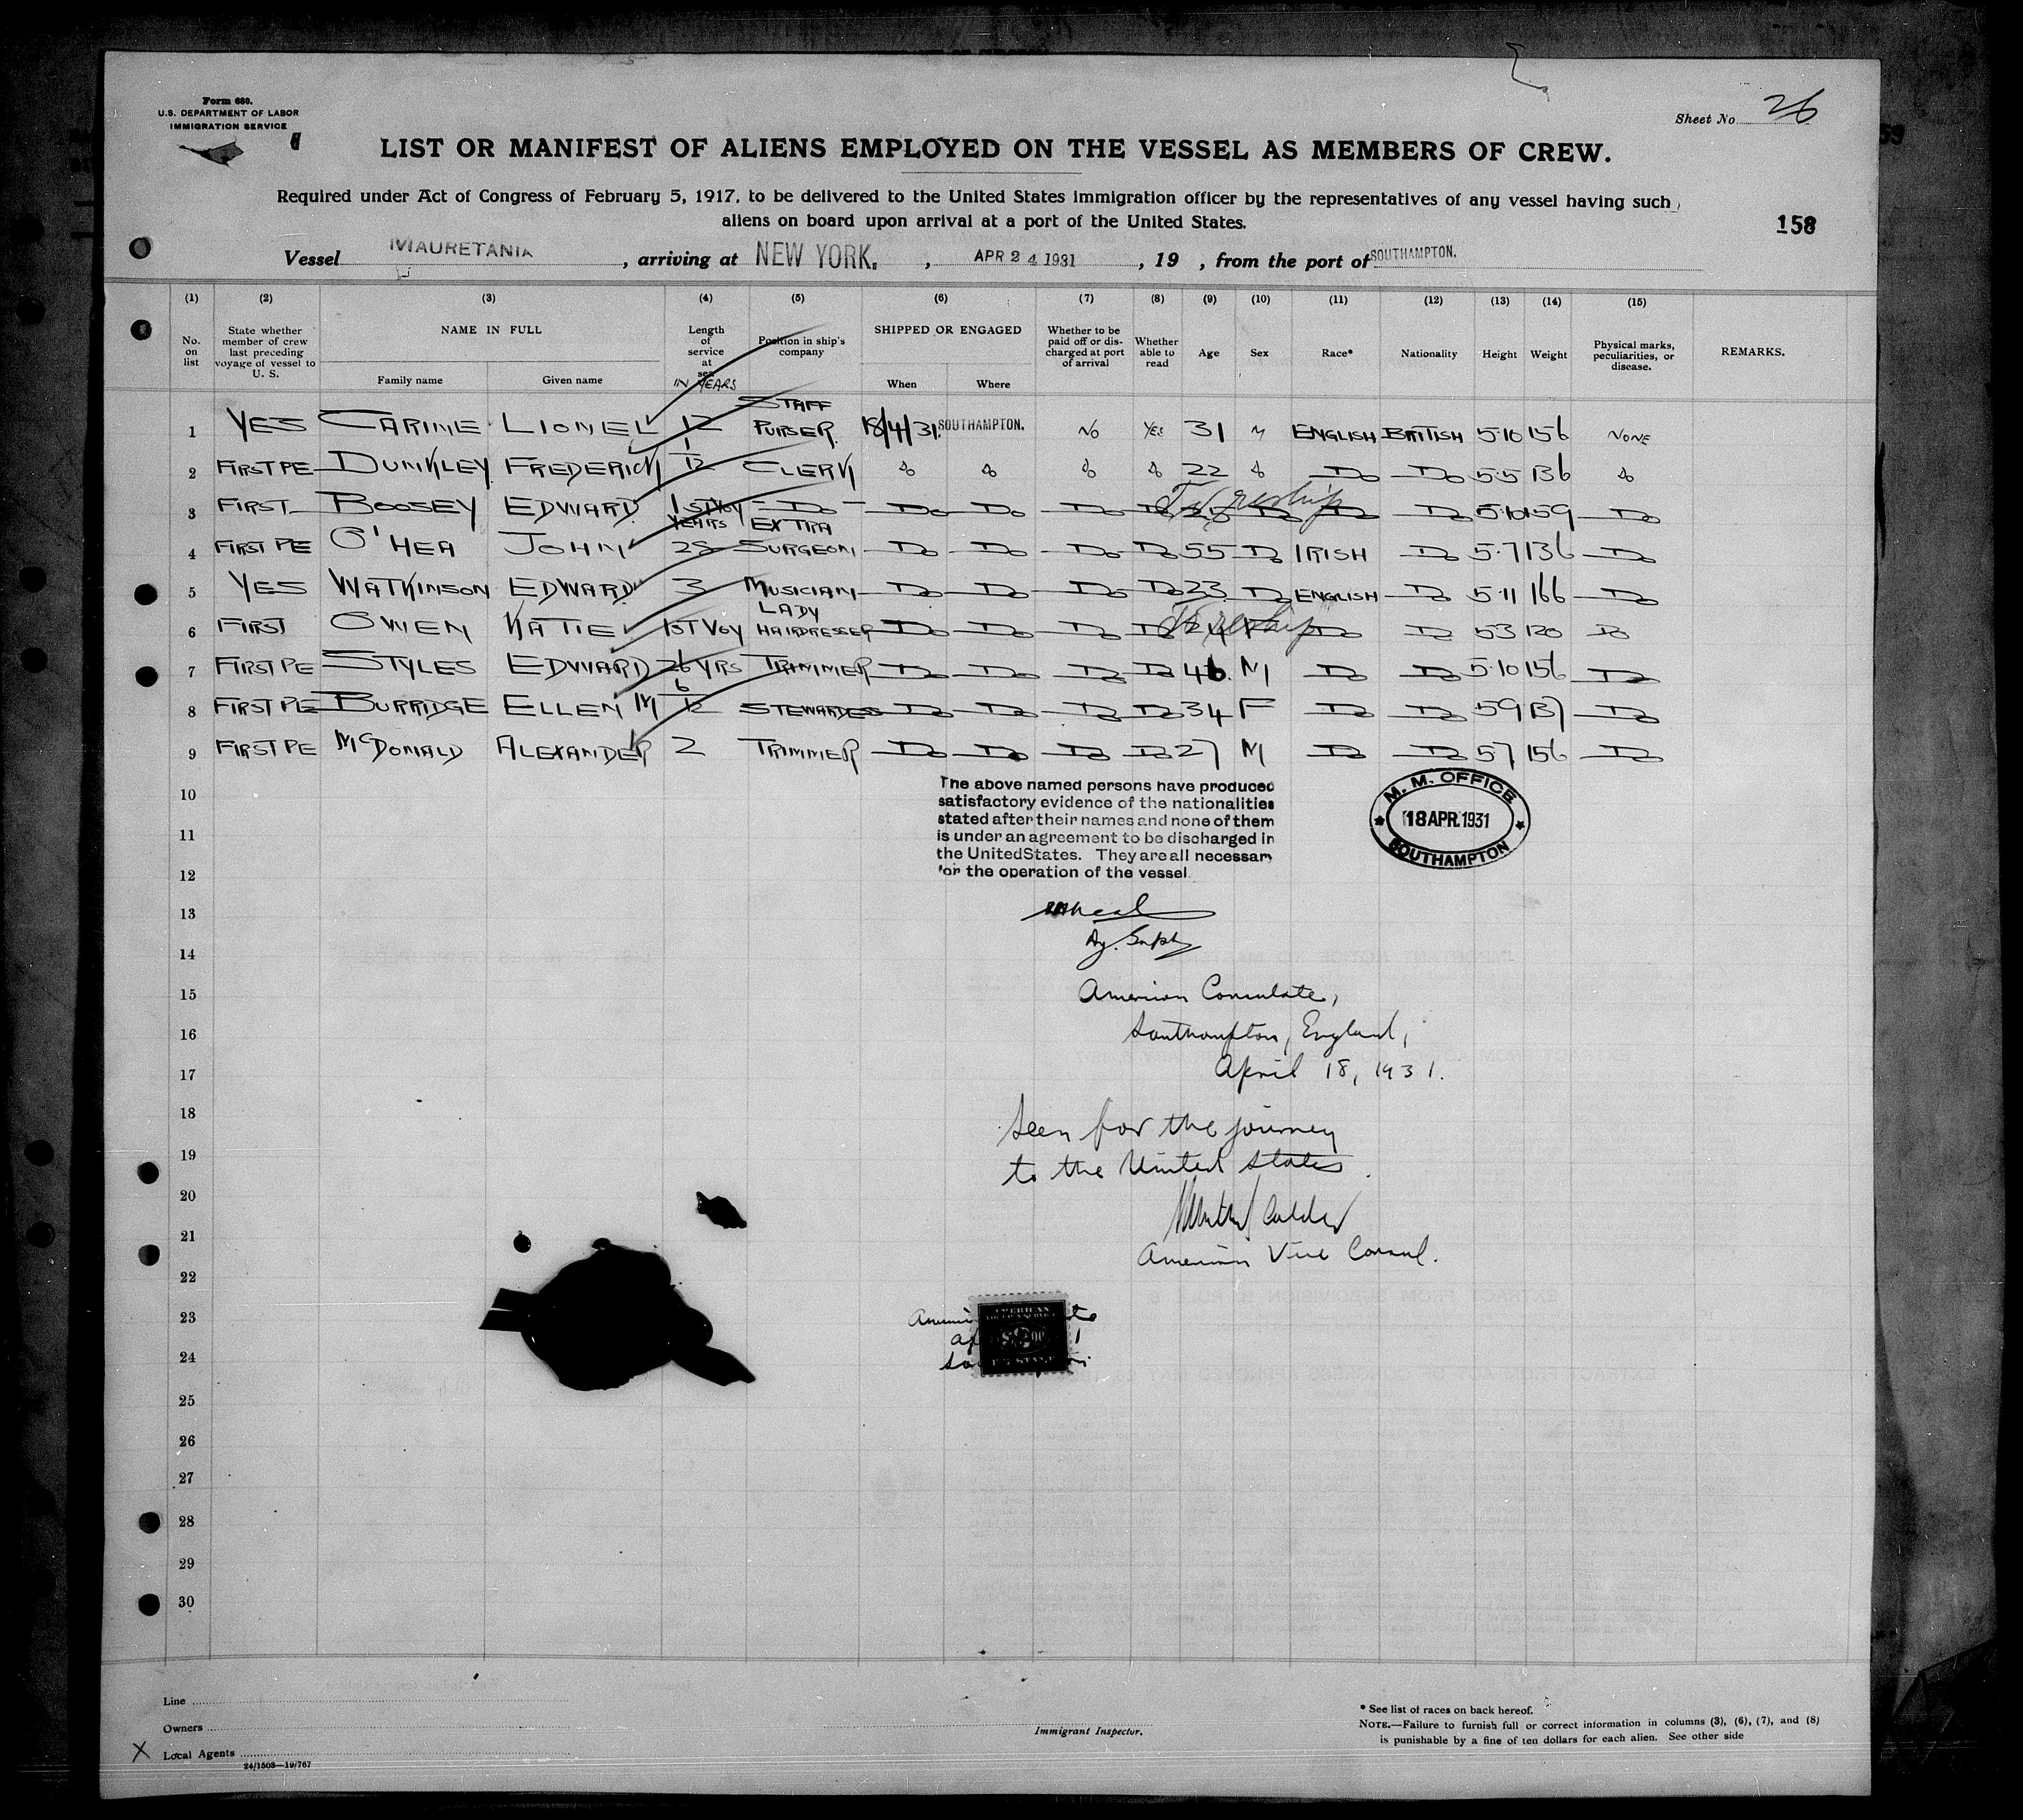 Form 680.
U.S. DEPARTMENT OF LABOR
IMMIGRATION SERVICE
Sheet No. 26
LIST OR MANIFEST OF ALIENS EMPLOYED ON THE VESSEL AS MEMBERS OF CREW.
Required under Act of Congress of February 5, 1917, to be delivered to the United States immigration officer by the representatives of any vessel having such
aliens on board upon arrival at a port of the United States.
158
Vessel MAURETANIA, arriving at NEW YORK, , APR 24 1931, 19 , from the port of SOUTHAMPTON.
(1) (2) (3) (4) (5) (6) (7) (8) (9) (10) (11) (12) (13) (14) (15)
No. on list State whether member of crew last preceding voyage of vessel to U. S. NAME IN FULL Family name Given name Length of service at sea IN YEARS Position in ship's company SHIPPED OR ENGAGED When Where Whether to be paid off or discharged at port of arrival Whether able to read Age Sex Race* Nationality Height Weight Physical marks, peculiarities, or disease. REMARKS.
1 YES CARINE LIONEL 12 STAFF PURSER. 18/4/31. SOUTHAMPTON. NO YES 31 M ENGLISH BRITISH 5·10 156 NONE
2 FIRST PE DUNKLEY FREDERICK 1/12 CLERK do do do do 22 do Do Do 5·5 136 do
3 FIRST BOOSEY EDWARD 1ST VOY Do Do Do Do Do Do Do Do 5·10 159 Do
4 FIRST PE O'HEA JOHN YEARS 28 EXTRA SURGEON Do Do Do Do 55 Do IRISH Do 5·7 136 Do
5 YES WATKINSON EDWARD 3 MUSICIAN Do Do Do Do 23 Do ENGLISH Do 5·11 166 Do
6 FIRST OWEN KATIE 1ST VOY LADY HAIRDRESSER Do Do Do Do F Do Do 53 120 Do
7 FIRST PE STYLES EDWARD 26 YRS TRIMMER Do Do Do Do 46. M Do Do 5·10 156 Do
8 FIRST PE BURRIDGE ELLEN M 6/12 STEWARDESS Do Do Do Do 34 F Do Do 59 137 Do
9 FIRST PE McDONALD ALEXANDER 2 TRIMMER Do Do Do Do 27 M Do Do 57 156 Do
10
The above named persons have produced
satisfactory evidence of the nationalities
stated after their names and none of them
is under an agreement to be discharged in
the United States. They are all necessary
for the operation of the vessel
M. M. OFFICE
18 APR. 1931
SOUTHAMPTON
11
12
13
14
15 American Consulate,
16 Southampton, England,
17 April 18, 1931.
18 Seen for the journey
19 to the United States.
20
21 Calder
American Vice Consul.
22
23 AMERICAN
24
25
26
27
28
29
30
Line
Owners
Local Agents
24/1503—19/767
Immigrant Inspector.
* See list of races on back hereof.
NOTE.—Failure to furnish full or correct information in columns (3), (6), (7), and (8)
is punishable by a fine of ten dollars for each alien. See other side